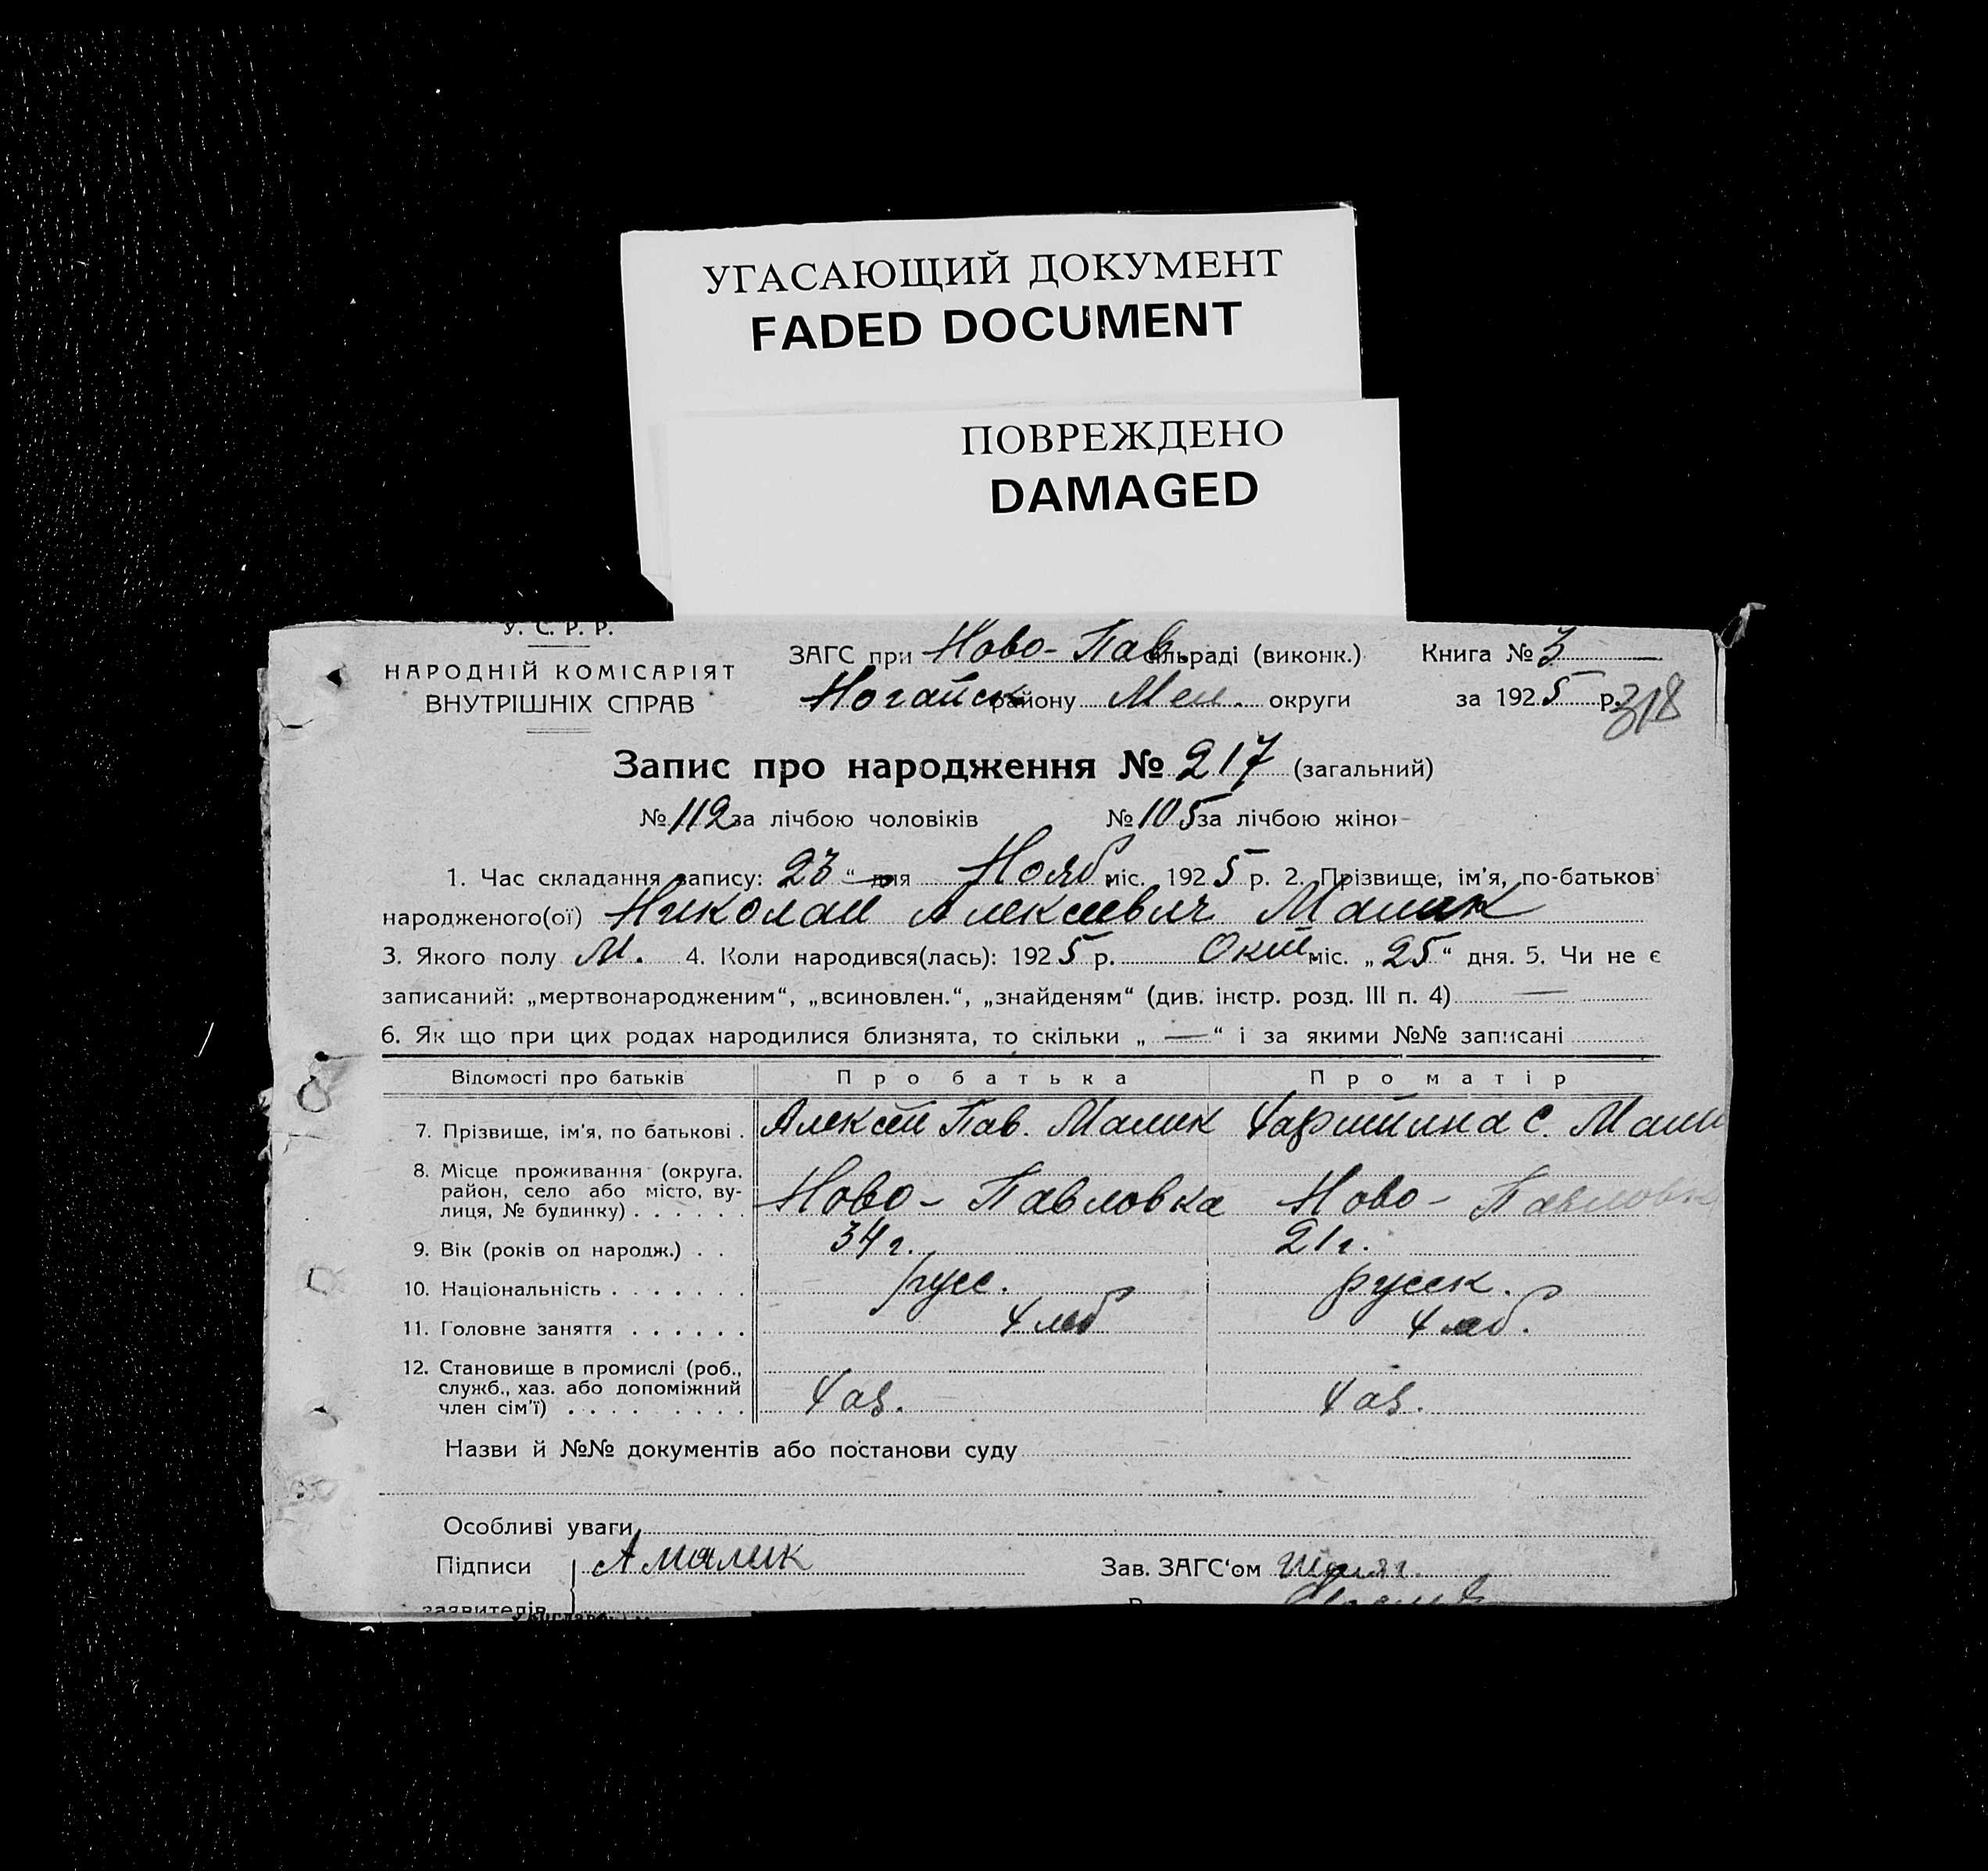 УГАСАЮЩИЙ ДОКУМЕНТ
FADED DOCUMENT
ПОВРЕЖДЕНО
DAMAGED
У. С. Р. Р.
НАРОДНІЙ КОМІСАРІЯТ
ВНУТРІШНІХ СПРАВ
ЗАГС при Ново-Пав. сільраді (виконк.) Книга № 3
Ногайск району Мел. округи за 1925 р.
318
Запис про народження № 217 (загальний)
№ 112 за лічбою чоловіків № 105 за лічбою жінок
1. Час складання запису: 23 “ дня Нояб міс. 1925 р. 2. Прізвище, ім'я, по-батькові
народженого(ої) Николай Алексеевич Малик
3. Якого полу М. 4. Коли народився(лась): 1925 р. Окт міс. „ 25 “ дня. 5. Чи не є
записаний: „мертвонародженим“, „всиновлен.“, „знайденям“ (див. інстр. розд. III п. 4) —
6. Як що при цих родах народилися близнята, то скільки „ — “ і за якими №№ записані
Відомості про батьків Про батька Про матір
7. Прізвище, ім'я, по батькові . Алексей Пав. Малик С. Мали
8. Місце проживання (округа,
район, село або місто, ву-
лиця, № будинку) . . . . . . Ново-Павловка Ново-Павловк
9. Вік (років од народж.) . . 34 г. 21 г.
10. Національність . . . . . . . русс. русск.
11. Головне заняття . . . . . . хлеб хлеб.
12. Становище в промислі (роб.,
служб., хаз. або допоміжний
член сім'ї) . . . . . . . . . хаз. хаз.
Назви й №№ документів або постанови суду
Особливі уваги
Підписи А Малик Зав. ЗАГС‘ом
заявителів